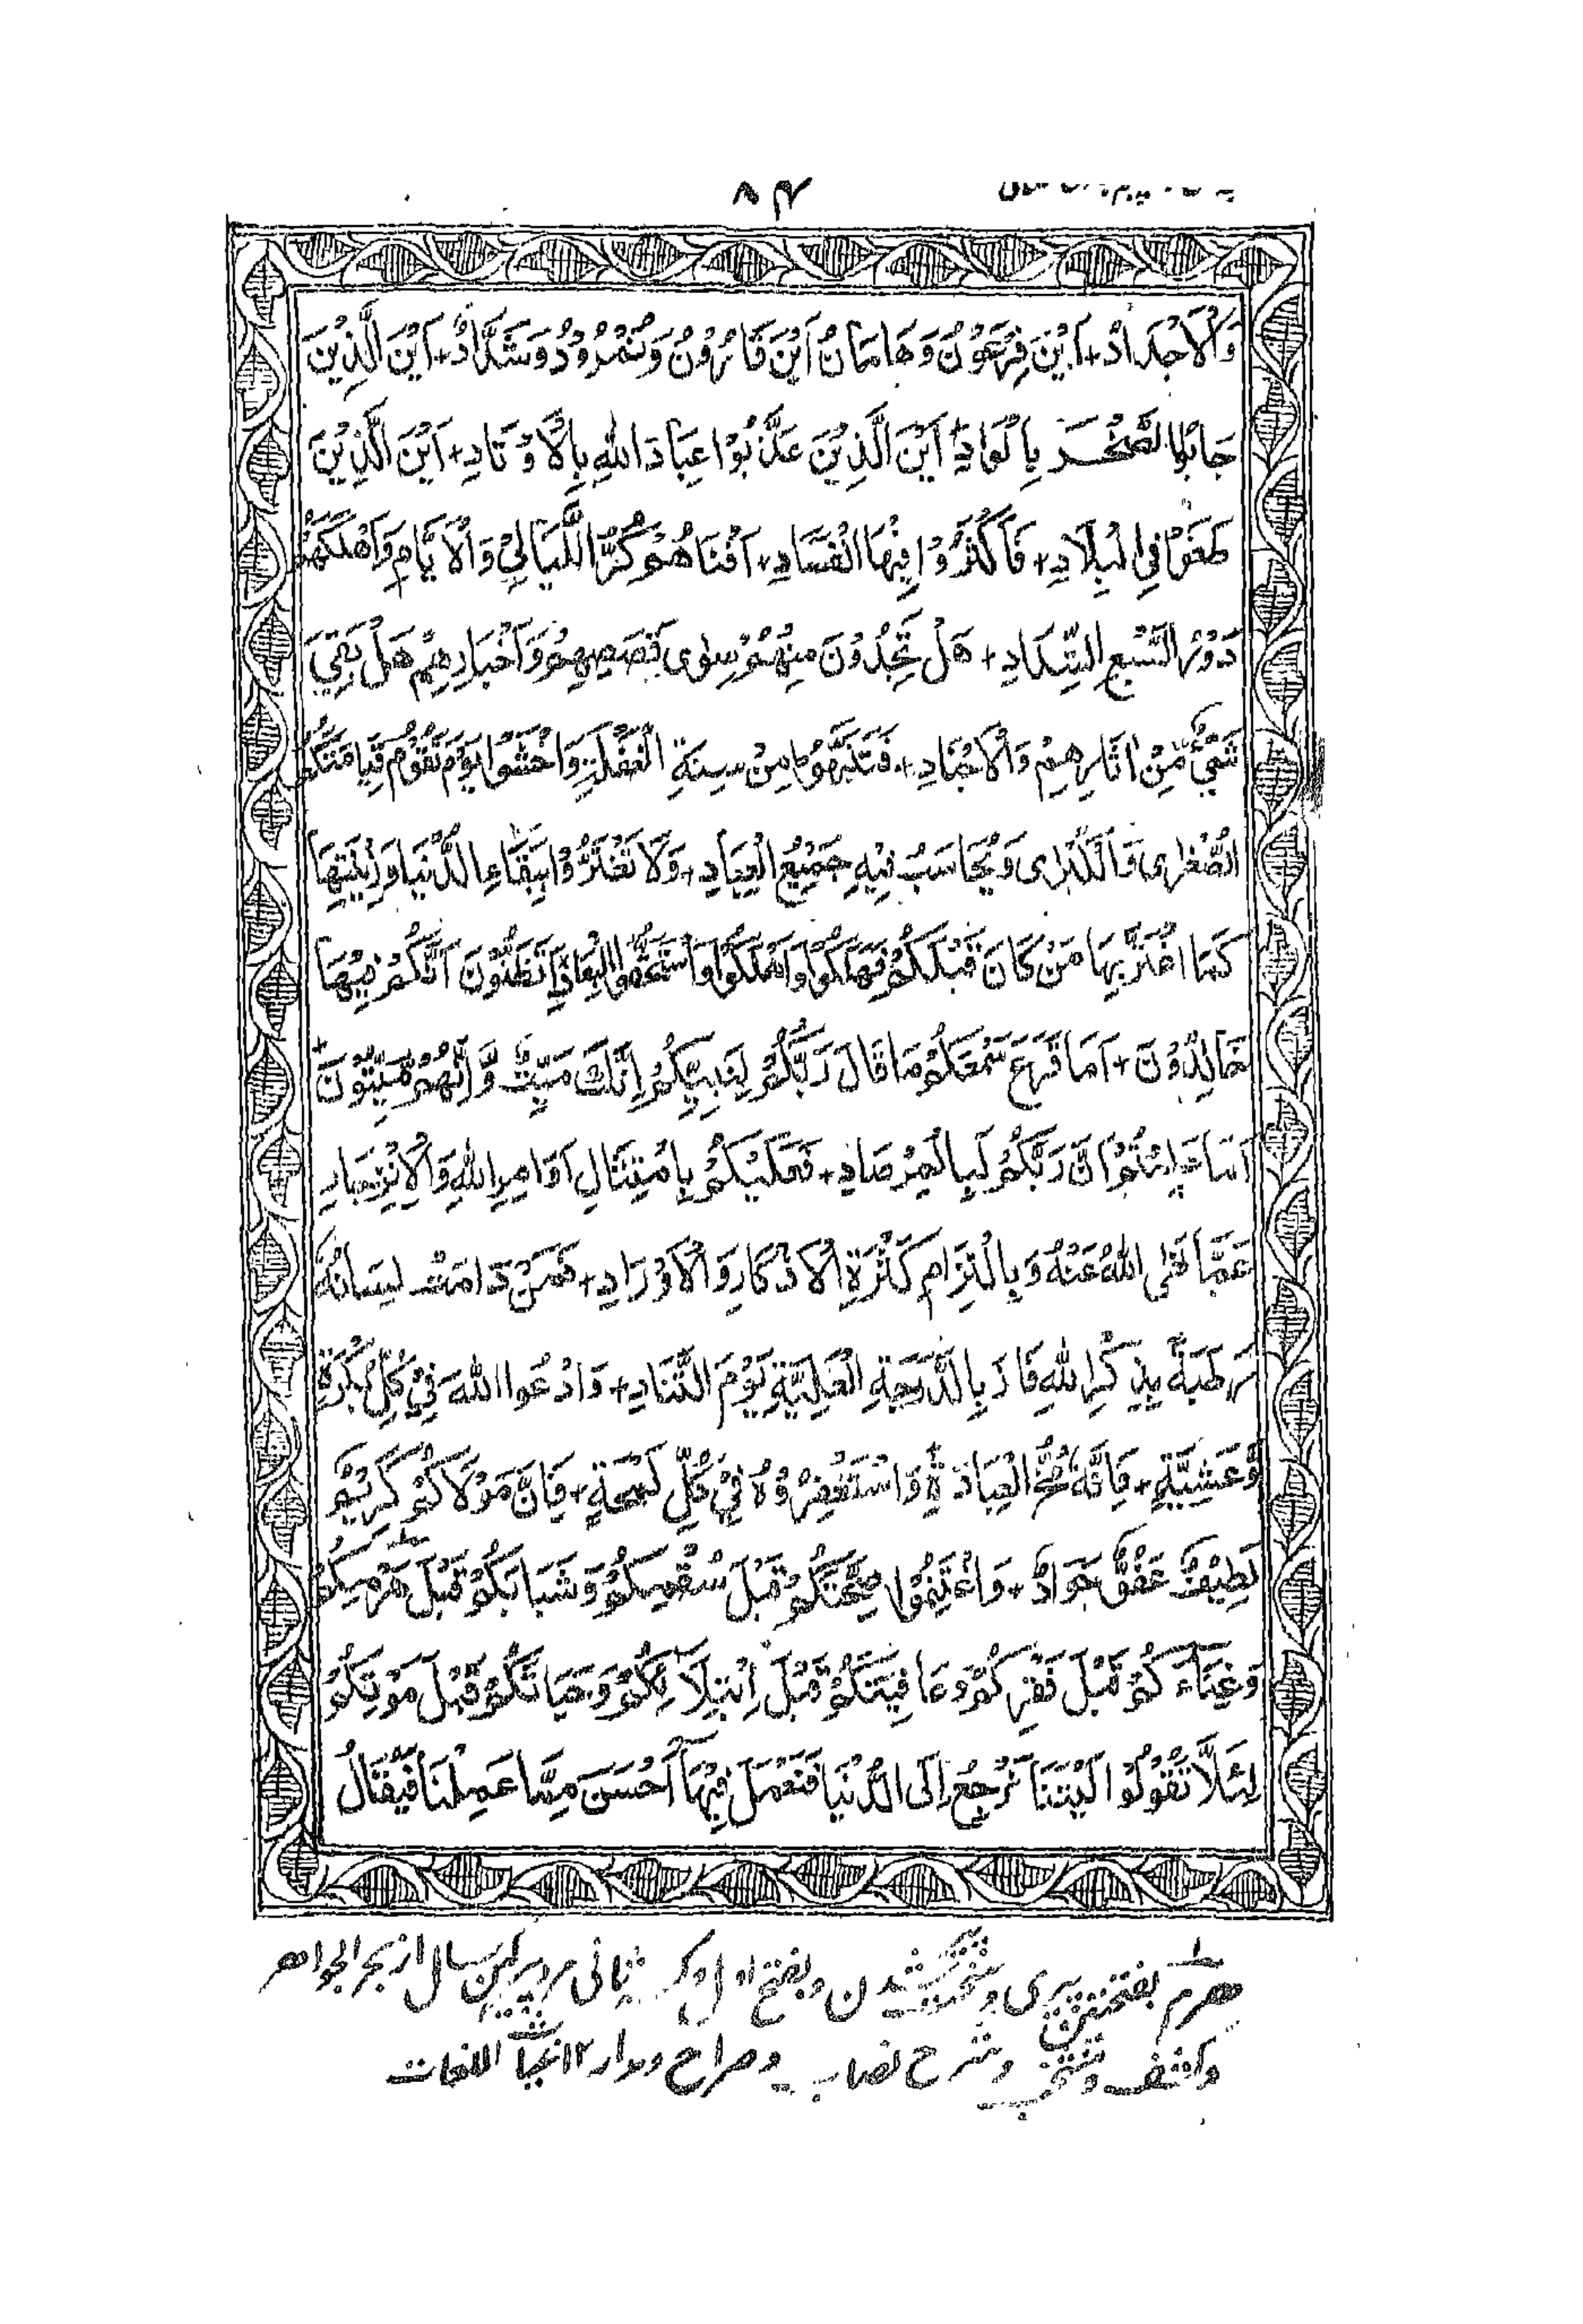 ۸۴
وَالْاَجْدَادُ + اَیْنَ فِرْعَوْنُ وَهَامَانُ اَیْنَ قَارُوْنُ وَنُمْرُوْدُ وَشَدَّادُ + اَیْنَ الَّذِیْنَ
جَابُوا الصَّخْرَ بِالْوَادِ + اَیْنَ الَّذِیْنَ عَذَّبُوْا عِبَادَ اللهِ بِالْاَوْتَادِ + اَیْنَ الَّذِیْنَ
طَغَوْا فِی الْبِلَادِ + فَاَكْثَرُوْا فِیْهَا الْفَسَادِ + اَفْنَاهُمْ كَرُّ اللَّیَالِیْ وَالْاَیَّامِ وَاَهْلَكَهُمْ
دَوْرُ السَّبْعِ الشِّدَادِ + هَلْ تَجِدُوْنَ مِنْهُمْ سِوٰی قَصَصِهِمْ وَاَخْبَارِهِمْ هَلْ بَقِیَ
شَیْءٌ مِّنْ اٰثَارِهِمْ وَالْاَجْنَادِ + فَتَنَبَّهُوْا مِنْ سِنَةِ الْغَفْلَةِ وَاخْشَوْا یَوْمَ تَقُوْمُ قِیَامَتُكُمُ
الصُّغْرٰی وَالْكُبْرٰی وَیُحَاسَبُ فِیْهِ جَمِیْعُ الْعِبَادِ + وَلَا تَغْتَرُّوْا بِبَقَاءِ الدُّنْیَا وَزِیْنَتِهَا
كَمَا اغْتَرَّ بِهَا مَنْ كَانَ قَبْلَكُمْ فَهَلَكُوْا وَاَهْلَكُوْا وَاسْتَحَقُّوا الْبِعَادَ اَتَظُنُّوْنَ اَنَّكُمْ فِیْهَا
خَالِدُوْنَ + اَمَا قَرَعَ سَمْعَكُمْ مَا قَالَ رَبُّكُمْ لِنَبِیِّكُمْ اِنَّكَ مَیِّتٌ وَّاِنَّهُمْ مَّیِّتُوْنَ +
اَمَا عَلِمْتُمْ اَنَّ رَبَّكُمْ لَبِالْمِرْصَادِ + فَعَلَیْكُمْ بِامْتِثَالِ اَوَامِرِ اللهِ وَالْاِنْزِجَارِ
عَمَّا نَهَی اللهُ عَنْهُ وَبِالْتِزَامِ كَثْرَةِ الْاَذْكَارِ وَالْاَوْرَادِ + فَمَنْ دَامَتْ لِسَانُهُ
رَطْبَةً بِذِكْرِ اللهِ فَازَ بِالدَّرَجَةِ الْعَلِیَّةِ یَوْمَ التَّنَادِ + وَادْعُوا اللهَ فِیْ كُلِّ بُكْرَةٍ
وَّعَشِیَّةٍ + فَاِنَّهُ مُخُّ الْعِبَادَةِ وَاسْتَغْفِرُوْهُ فِیْ كُلِّ لَمْحَةٍ + فَاِنَّ مَوْلَاكُمْ كَرِیْمٌ
لَطِیْفٌ عَفُوٌّ جَوَادٌ + وَاغْتَنِمُوْا صِحَّتَكُمْ قَبْلَ سُقْمِكُمْ وَشَبَابَكُمْ قَبْلَ هَرَمِكُمْ
وَغِنَاءَكُمْ قَبْلَ فَقْرِكُمْ وَعَافِیَتَكُمْ قَبْلَ اِبْتِلَائِكُمْ وَحَیَاتَكُمْ قَبْلَ مَوْتِكُمْ
لِئَلَّا تَقُوْلُوْا لَیْتَنَا نَرْجِعُ اِلَی الدُّنْیَا فَنَعْمَلَ فِیْهَا اَحْسَنَ مِمَّا عَمِلْنَا فَیُقَالُ
هرم بفتحتین پیری و شدن و بفتح اول و کسر ثانی مرد پیر کهن سال از بحر الجواهر
و کشف و منتخب و شرح نصاب و صراح و مدار ۱۲ اللغات